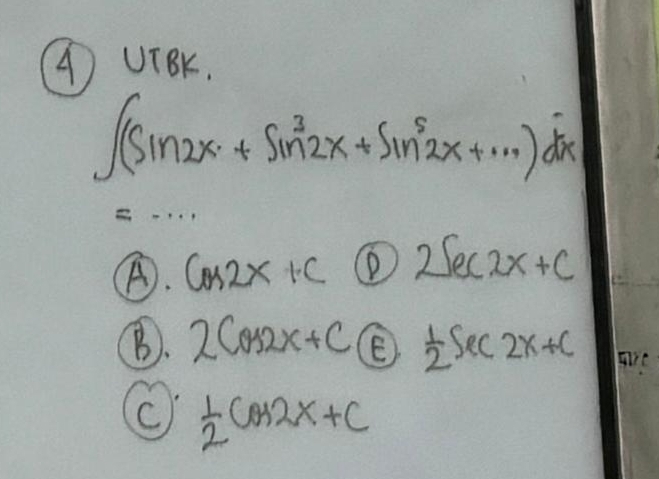 4 UTBK.
∫(Sin2x + Sin³2x + Sin⁵2x + ...) dx
= ....
A. Cos2x + C D 2Sec2x + C
B. 2Cos2x + C E. 1/2 Sec 2x + C
C. 1/2 Cos2x + C